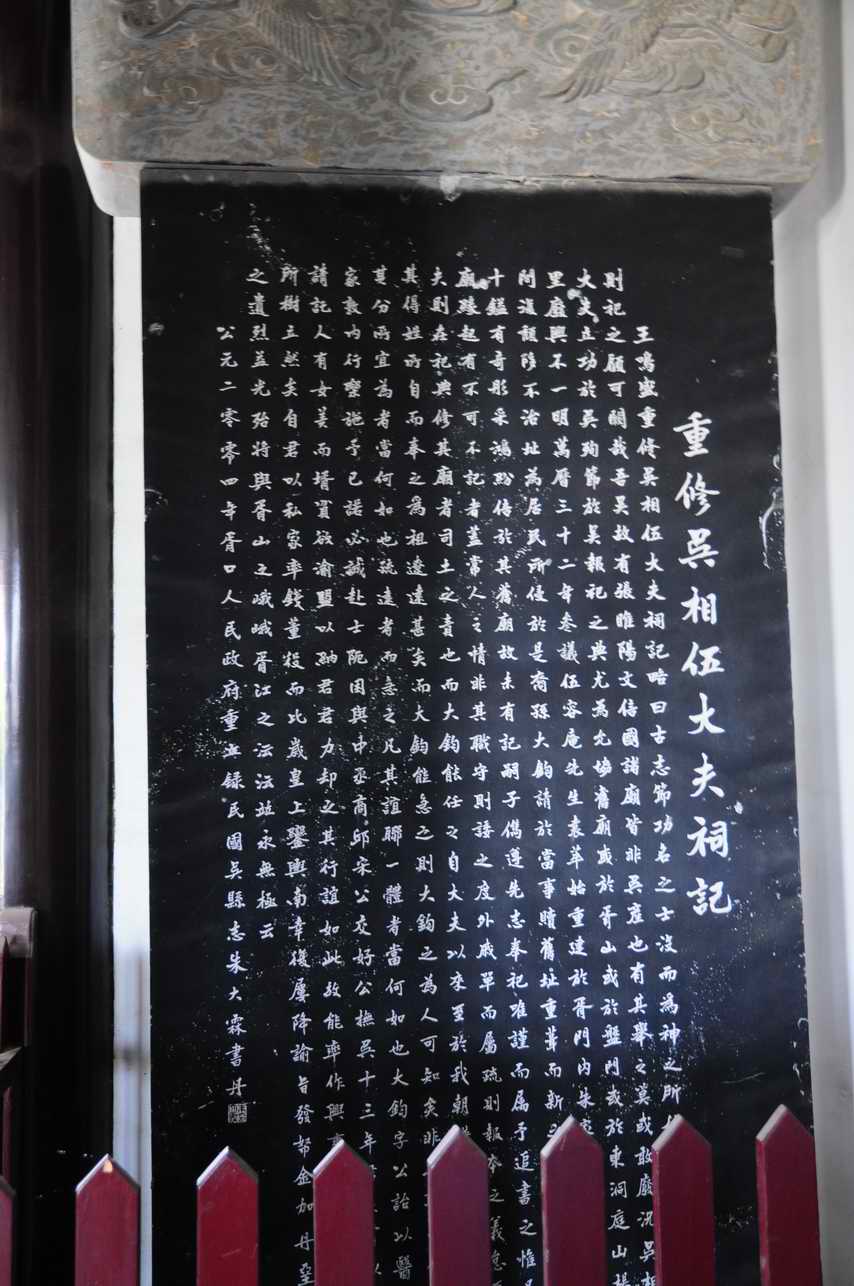 重修吳相伍大夫祠記
王鳴盛重修吳相伍大夫祠記略曰古志節功名之士沒而為神之所
則祀之顧可闕哉吾吳故有張睢陽文信國諸廟皆非吳產也有其舉之莫或敢廢況吳相
大夫立功於吳殉節於吳報祀之典尤為允協舊廟或於胥山或於盤門或於東洞庭山
里廢興不一明萬曆三十二年參議伍容庵先生袁萃始重建於胥門內朱
間復頹隳不治址為居民所侵於是裔孫大鈞請於當事贖舊址重葺而新之
十鎰有奇彤采鴻紛倍於其舊廟故未有記嗣子儁遵先志奉祀唯謹而属予追書之惟
廟蹟起有不可不記者蓋常人之情非其職守則諉之度外戚單而屬疏則報本之義怠
夫則在祀典修其廟者司土之責也而大鈞能任之自大夫以來至於我朝
其得姓所自而奉之為祖遼遠甚矣而大鈞能急之則大鈞之為人可知矣非
其分所宜為者當何如也疏遠者而急之凡其誼聯一體者當何如也大鈞字公詒以醫
家敦內行樂施予已諾必誠赴士阨困與中丞商邱宋公交好公撫吳十三年
請記人有女美而壻貧欲渝盟以納君君力却之其行誼如此故能率作興
所樹立然矣自君以私家率錢董役而比歲皇上鑾輿南幸後屢降諭旨發帑金加丹堊
之遺烈益光殆將與胥山之峨峨胥江之沄沄並永無極云
公元二零零四年胥口人民政府重立錄民國吳縣志朱大霖書丹